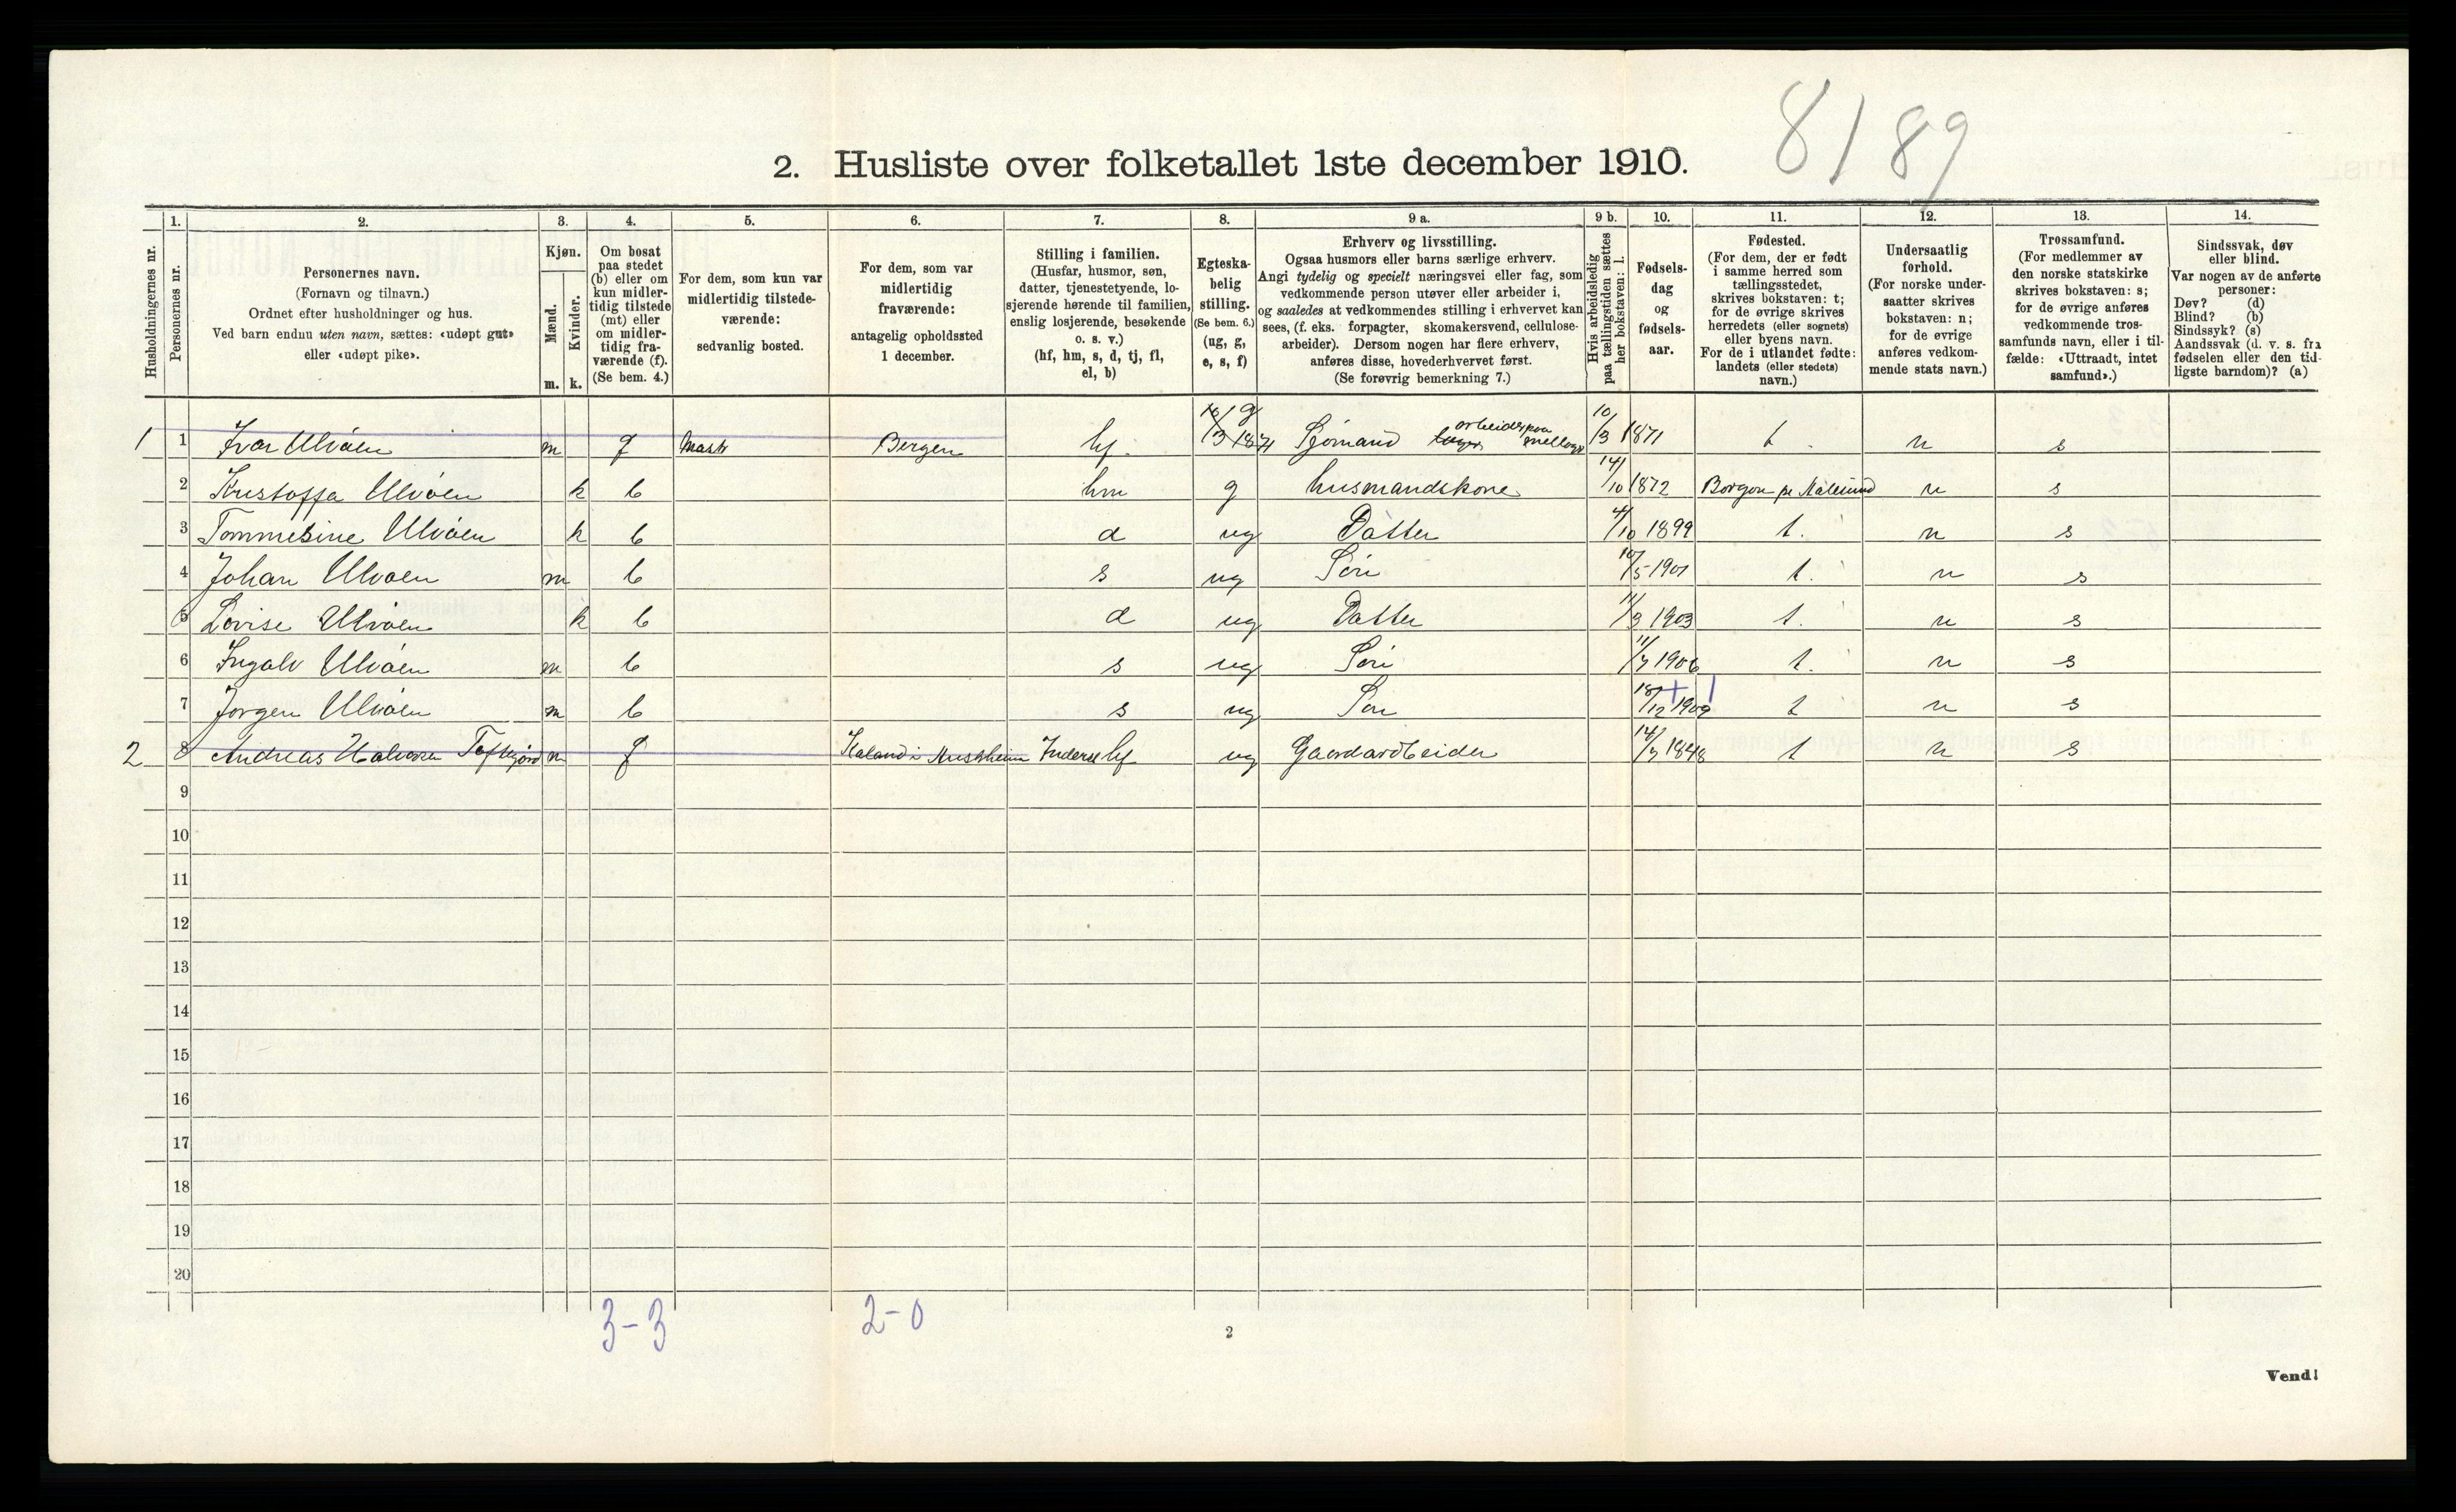 8189
2. Husliste over folketallet 1ste december 1910.
Husholdningernes nr.
1.
Personernes nr.
2.
Personernes navn.
(Fornavn og tilnavn.)
Ordnet efter husholdninger og hus.
Ved barn endnu uten navn, sættes: «udøpt gut»
eller «udøpt pike».
3.
Kjøn.
Mænd.
Kvinder.
m. k.
4.
Om bosat
paa stedet
(b) eller om
kun midler-
tidig tilstede
(mt) eller
om midler-
tidig fra-
værende (f).
(Se bem. 4.)
5.
For dem, som kun var
midlertidig tilstede-
værende:
sedvanlig bosted.
6.
For dem, som var
midlertidig
fraværende:
antagelig opholdssted
1 december.
7.
Stilling i familien.
(Husfar, husmor, søn,
datter, tjenestetyende, lo-
sjerende hørende til familien,
enslig losjerende, besøkende
o. s. v.)
(hf, hm, s, d, tj, fl,
el, b)
8.
Egteska-
belig
stilling.
(Se bem. 6.)
(ug, g,
e, s, f)
9 a.
Erhverv og livsstilling.
Ogsaa husmors eller barns særlige erhverv.
Angi tydelig og specielt næringsvei eller fag, som
vedkommende person utøver eller arbeider i,
og saaledes at vedkommendes stilling i erhvervet kan
sees, (f. eks. forpagter, skomakersvend, cellulose-
arbeider). Dersom nogen har flere erhverv,
anføres disse, hovederhvervet først.
(Se forøvrig bemerkning 7.)
9 b.
Hvis arbeidsledig
paa tællingstiden sættes
her bokstaven: l.
10.
Fødsels-
dag
og
fødsels-
aar.
11.
Fødested.
(For dem, der er født
i samme herred som
tællingsstedet,
skrives bokstaven: t;
for de øvrige skrives
herredets (eller sognets)
eller byens navn.
For de i utlandet fødte:
landets (eller stedets)
navn.)
12.
Undersaatlig
forhold.
(For norske under-
saatter skrives
bokstaven: n;
for de øvrige
anføres vedkom-
mende stats navn.)
13.
Trossamfund.
(For medlemmer av
den norske statskirke
skrives bokstaven: s;
for de øvrige anføres
vedkommende tros-
samfunds navn, eller i til-
fælde: «Uttraadt, intet
samfund».)
14.
Sindssvak, døv
eller blind.
Var nogen av de anførte
personer:
Døv? (d)
Blind? (b)
Sindssyk? (s)
Aandssvak (d. v. s. fra
fødselen eller den tid-
ligste barndom)? (a)
1 1 Ivar Ulvöen m f Bergen hf. 10/3 1871 g Sjömand arbeider paa 10/3 1871 t. n s
2 Kristoffa Ulvöen k b hm g husmandskone 14/10 1872 Borgon pr Aalesund n s
3 Tommesine Ulvöen k b d ug Datter 4/10 1899 t. n s
4 Johan Ulvöen m b s ug Sön 10/5 1901 t. n s
5 Lovise Ulvöen k b d ug Datter 11/3 1903 t. n s
6 Ingalv Ulvöen m b s ug Sön 11/7 1906 t. n s
7 Jorgen Ulvöen m b s ug Sön 18/12 1909 t n s
2 8 Andreas Halvorsen m f hf ug Gaardarbeider 14/7 1848 t n s
9
10
11
12
13
14
15
16
17
18
19
20
3-3 2-0
2
Vend!